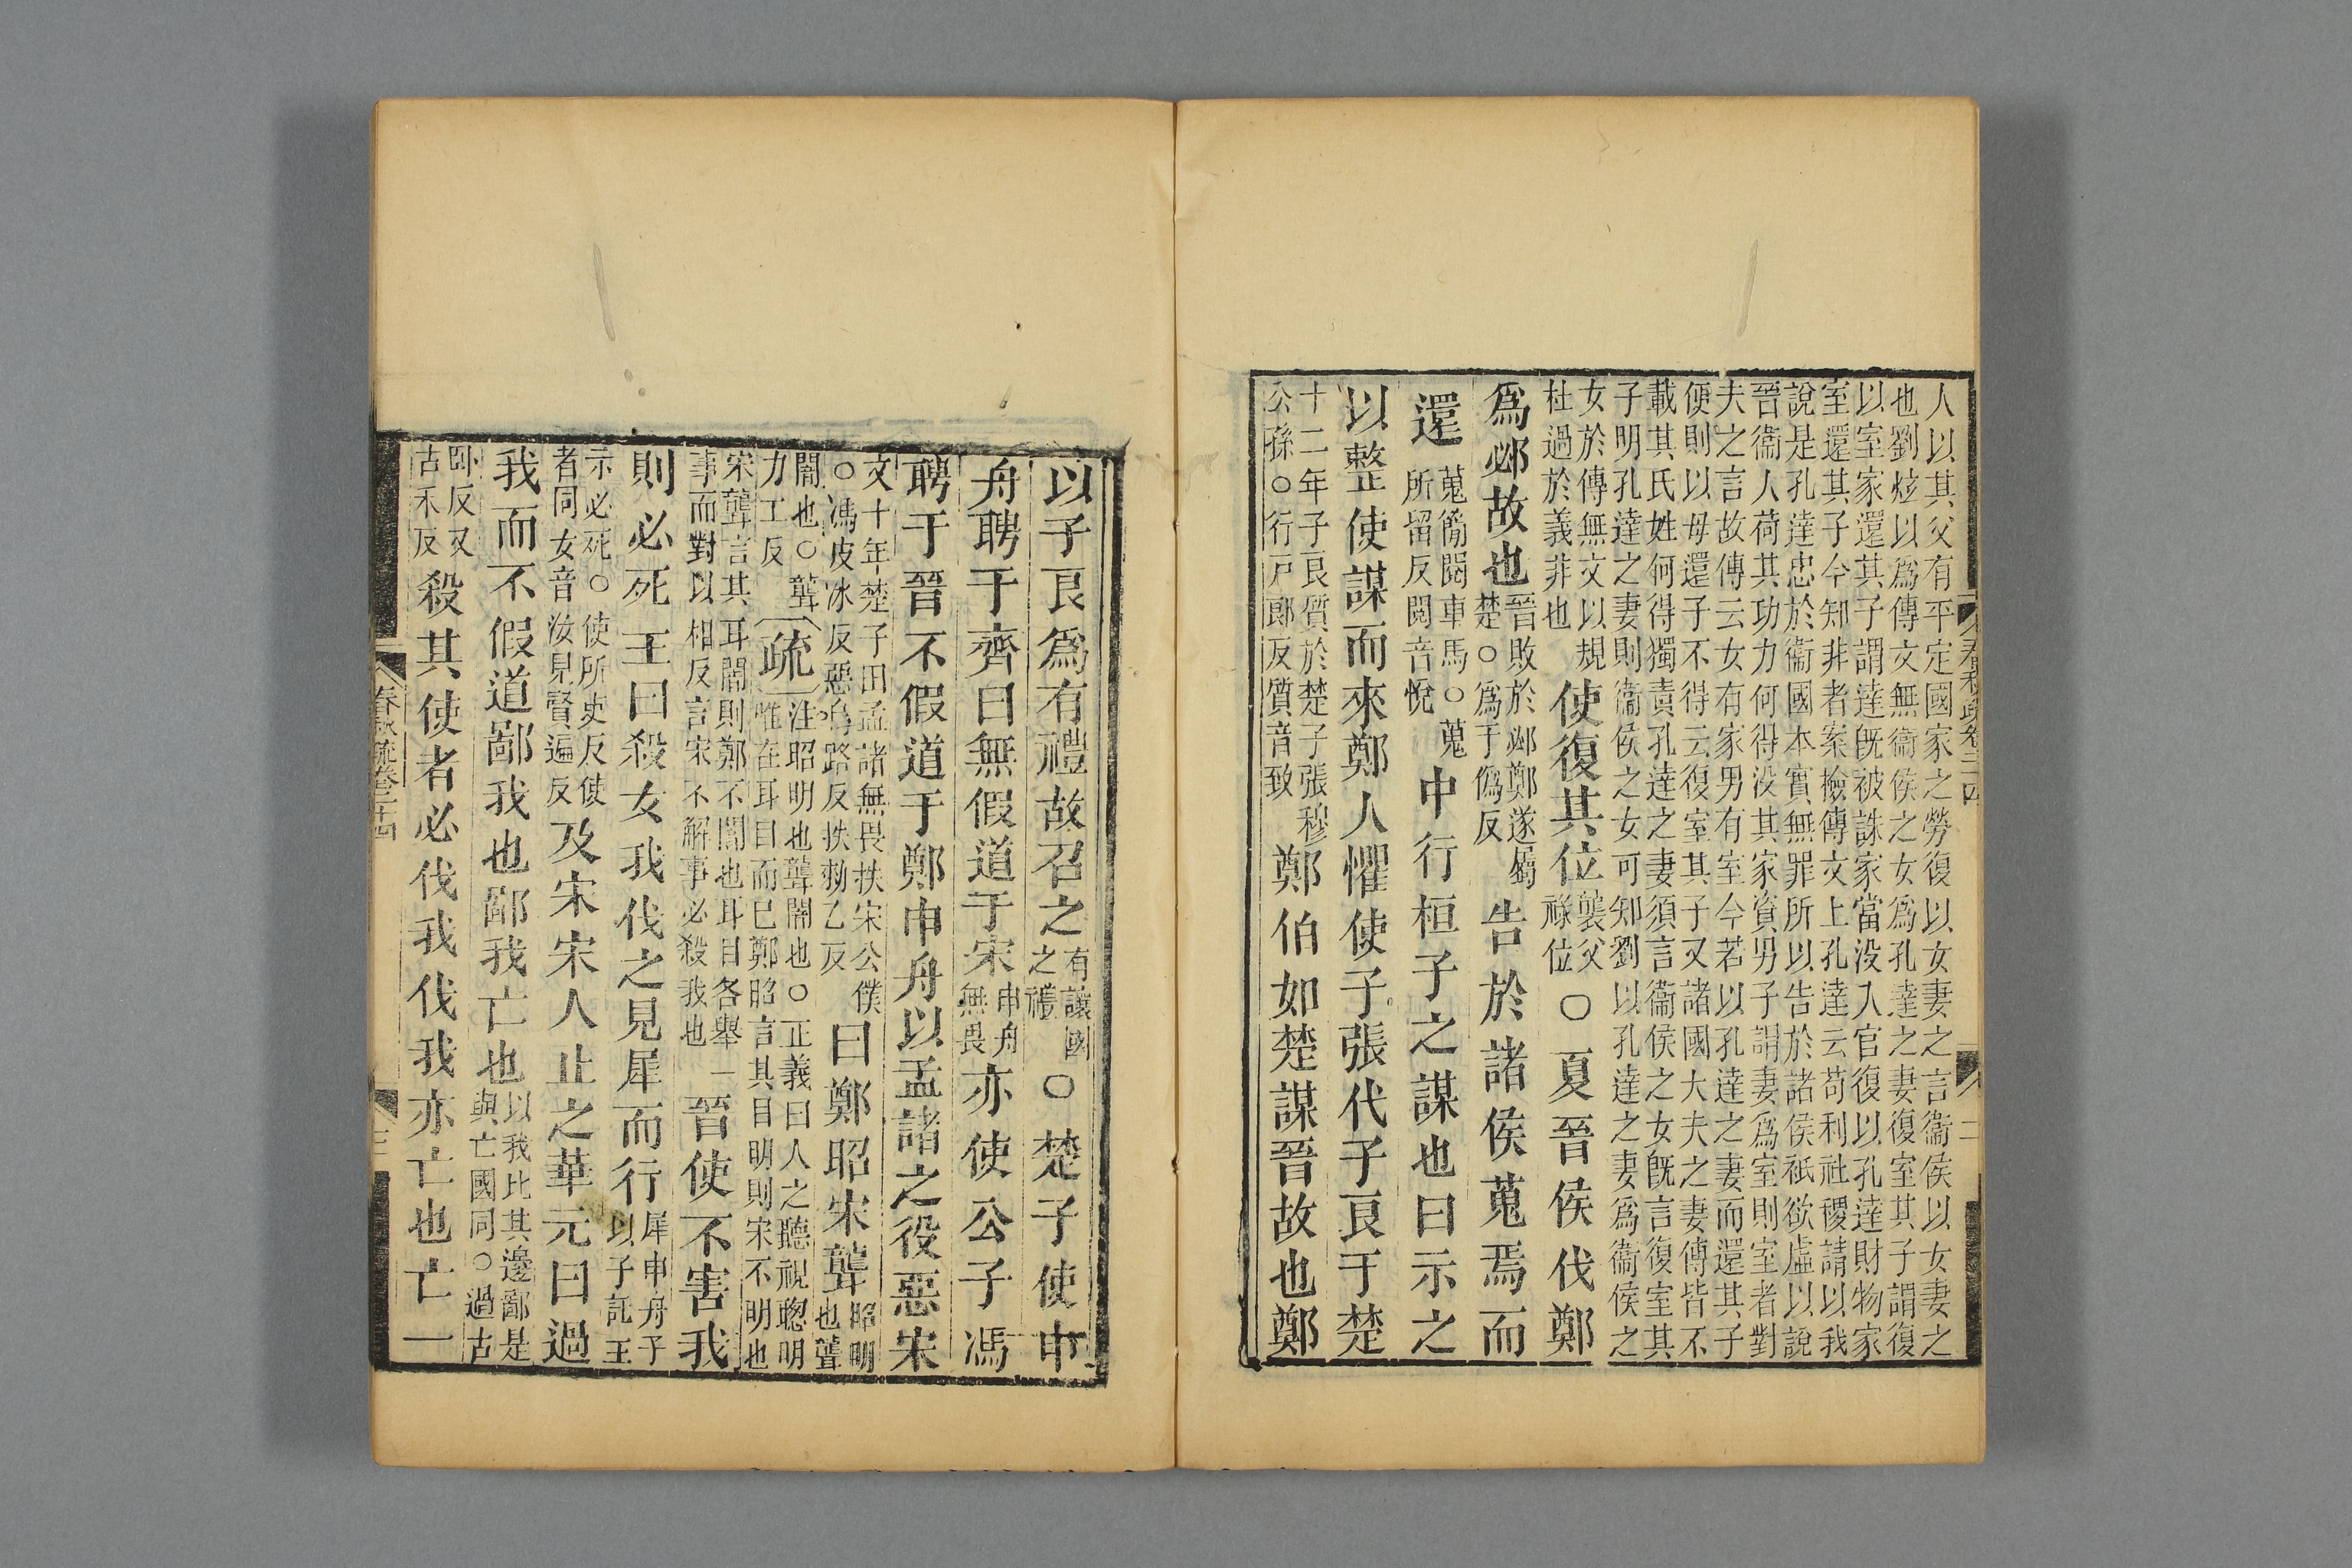 人以其父有平定國家之勞復以女妻之言衞侯以女妻之
也劉炫以爲傳文無衞侯之女爲孔達之妻復室其子謂復
以室家還其子謂達旣被誅家當没入官復以孔達財物家
室還其子今知非者案檢傳文上孔達云苟利社稷請以我
說是孔達忠於衞國本實無罪所以告於諸侯祇欲虛以說
晉衞人荷其功力何得没其家資男子謂妻爲室則室者對
夫之言故傳云女有家男有室今若以孔達之妻而還其子
便則以母還子不得云復室其子又諸國大夫之妻傳皆不
載其氏姓何得獨責孔達之妻須言衞侯之女旣言復室其
子明孔達之妻則衞侯之女可知劉以孔達之妻爲衞侯之
女於傳無文以規杜過於義非也使復其位襲父祿位○夏晉侯伐鄭
爲邲故也晉敗於邲鄭遂屬楚○爲于僞反告於諸侯蒐焉而
還蒐簡閱車馬○蒐所留反閱音悅中行桓子之謀也曰示之
以整使謀而來鄭人懼使子張代子良于楚
十二年子良質於楚子張穆公孫○行戸郎反質音致鄭伯如楚謀晉故也鄭
春秋疏卷二十四 二
以子良爲有禮故召之有讓國之禮○楚子使申
舟聘于齊曰無假道于宋申舟無畏亦使公子馮
聘于晉不假道于鄭申舟以孟諸之役惡宋
文十年楚子田孟諸無畏抶宋公僕○馮皮冰反惡烏路反抶勑乙反曰鄭昭宋聾昭明也聾
闇也○聾力工反疏注昭明也聾闇也○正義曰人之聽視聰明惟在耳目而已鄭昭言其目明則宋不明也
宋聾言其耳闇則鄭不闇也耳目各舉一事而對以相反言宋不解事必殺我也晉使不害我
則必死王曰殺女我伐之見犀而行犀申舟子以子託王
示必死○使所吏反使者同女音汝見賢遍反及宋宋人止之華元曰過
我而不假道鄙我也鄙我亡也以我比其邊鄙是與亡國同○過古
卧反又古禾反殺其使者必伐我伐我亦亡也亡一
春秋疏卷二十四 三